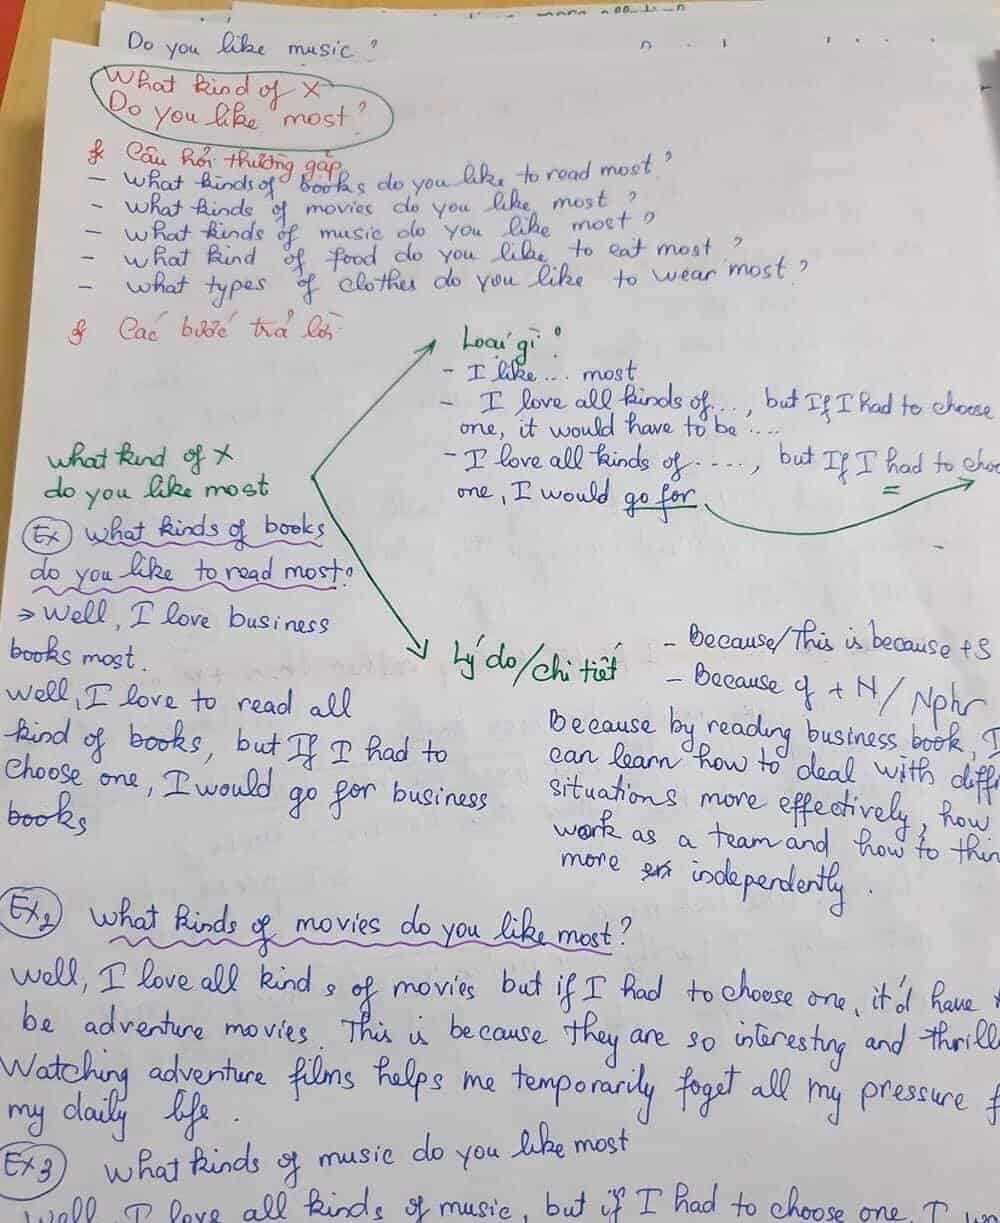 Do you like music?
What kind of X
Do you like most?
Câu hỏi thường gặp
- What kinds of books do you like to read most?
- What kinds of movies do you like most?
- What kinds of music do you like most?
- What kind of food do you like to eat most?
- What types of clothes do you like to wear most?
Các bước trả lời
Loại gì?
- I like .... most
- I love all kinds of...., but If I had to choose
one, it would have to be ....
- I love all kinds of ....., but If I had to
one, I would go for
what kind of X
do you like most
Ex What kinds of books
do you like to read most?
→ Well, I love business
books most.
Well, I love to read all
kind of books, but If I had to
choose one, I would go for business
books
Lý do/chi tiết
- Because/This is because + S
- Because of + N/Nphr
Because by reading business book, I
can learn how to deal with
situations more effectively, how
work as a team and how to
more independently.
Ex2 What kinds of movies do you like most?
Well, I love all kinds of movies but if I had to choose one, it'd have
be adventure movies. This is because they are so interesting and
Watching adventure films helps me temporarily foget all my pressure
my daily life.
Ex3 What kinds of music do you like most
Well, I love all kinds of music, but if I had to choose one, I